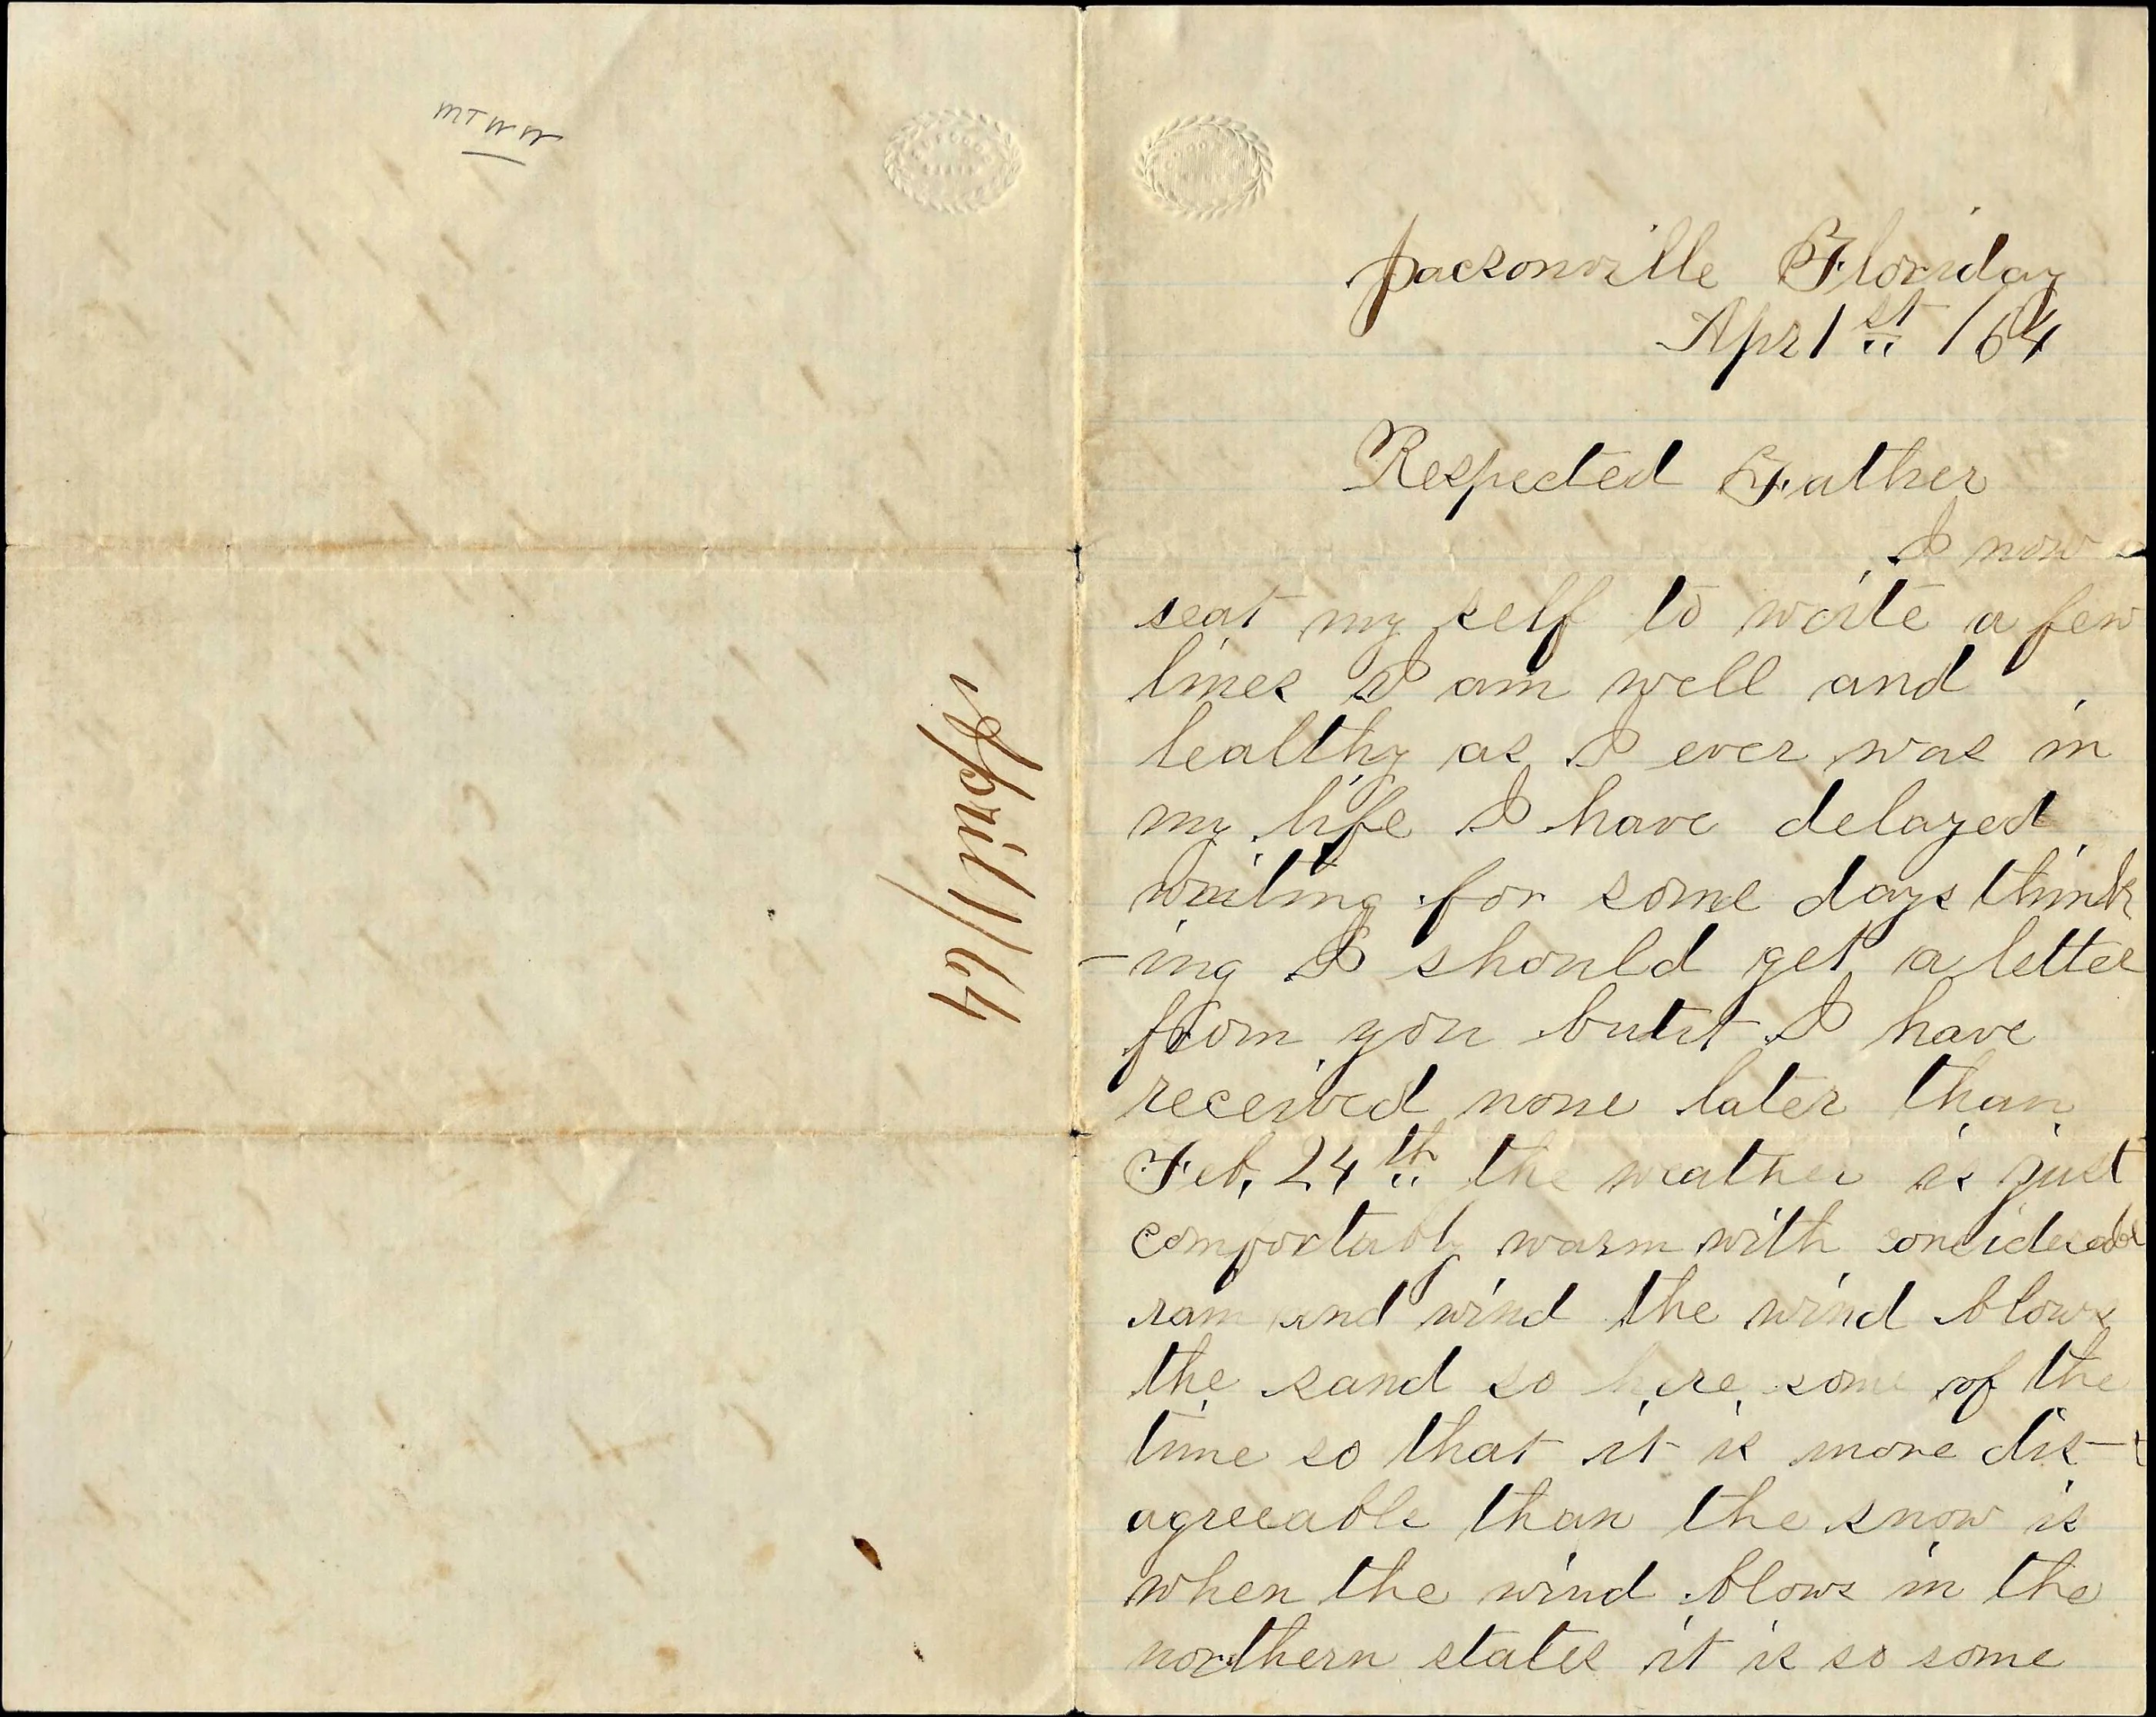 MTWW
April 1/64
Jacksonville Floriday
Apr 1st /64
Respected Father
I now
seat my self to write a few
lines I am well and
healthy as I ever was in
my life I have delayed
writing for some days think
-ing I should get a letter
from you but I have
received none later than
Feb, 24th the weather is just
comfortably warm with considerable
rain and wind the wind blows
the sand so here some of the
time so that it is more dis-
agreeable than the snow is
when the wind blows in the
northern states it is so some